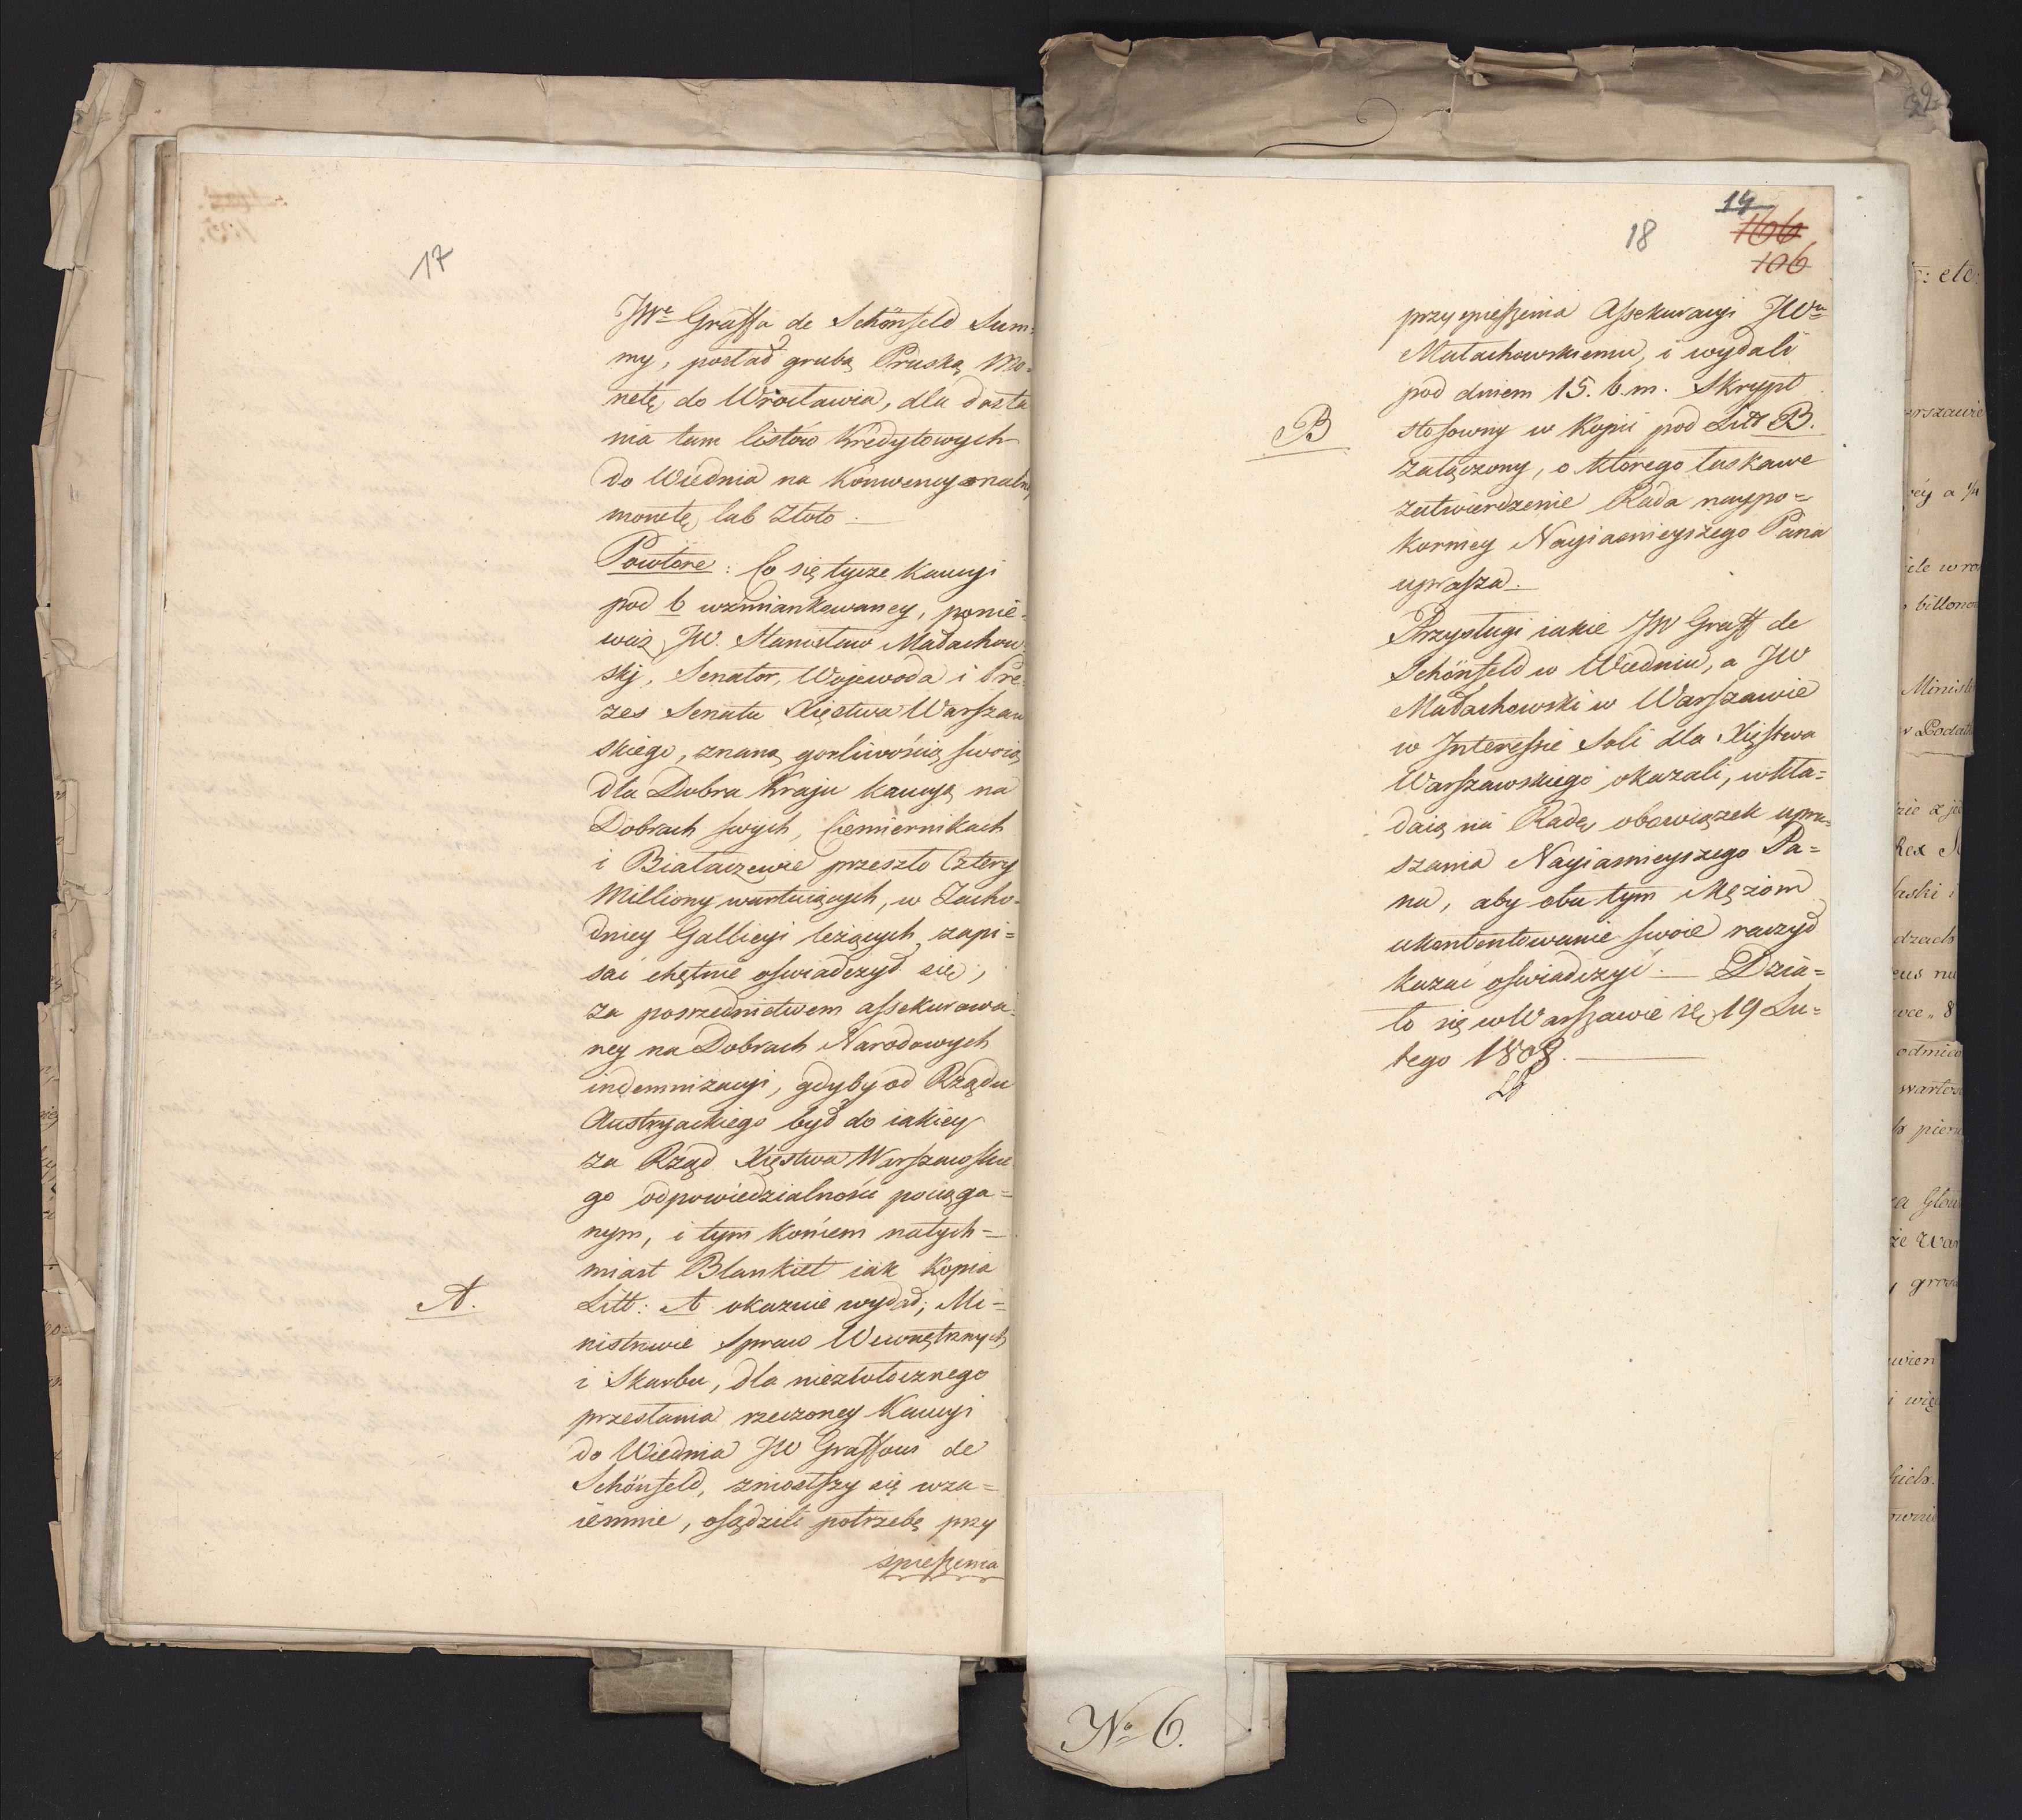 17
JWe Graffa de Schönfeld Sum=
my, posłać grubą Pruską Mo=
netę do Wrocławia, dla dosta
nia tam listów Kredytowych
do Wiednia na Konwencyonalną
monetę, lub Złoto.
Powtóre: Co się tycze Kaucyi
pod b wzmiankowaney, ponie=
waż JW. Stanisław Małachow
ski, Senator, Wojewoda i Pre=
zes Senatu Xięstwa Warszaw
skiego, znaną gorliwością swoią
dla Dobra Kraju kaucyą na
Dobrach swych, Ciemiernikach
i Białaczewie przeszło Cztery
Milliony wartuiących, w Zacho=
dniey Gallicyi leżących zapi=
sać chętnie oświadczył się,
za posrzednictwem assekurowa=
ney na Dobrach Narodowych
indemnizacyi, gdyby od Rządu
Austryackiego był do iakiey
za Rząd Xięstwa Warszawskie
go odpowiedzialności pociąga=
nym, i tym końcem natych=
miast Blankiet iak Kopia
A.
Litt: A okazuie wydał; Mi=
nistrowie Spraw Wewnętrznych
i Skarbu, dla niezwłocznego
przesłania rzeczoney Kaucyi
do Wiednia JW Graffowi de
Schönfeld, zniosłszy się wza=
iemnie, osądzili potrzebę przy
spieszenia
14
18
166
106
przyspieszenia Assekuracyi JWu
Małachowskiemu, i wydali
pod dniem 15. b.m. Skrypt
B
stosowny w Kopii pod Litt B.
załączony, o którego łaskawe
zatwierdzenie Rada naypo=
korniey Nayiaśnieyszego Pana
uprasza.
Przysługi iakie JW Graff de
Schönfeld w Wiedniu, a JW
Małachowski w Warszawie
w Interessie Soli dla Xięstwa
Warszawskiego okazali, wkła=
daią na Radę obowiązek upra=
szania Nayiaśnieyszego Pa=
na, aby obu tym Mężom
ukontentowanie swoie raczył
kazać oświadczyć. Dzia=
ło się w Warszawie d. 19 Lu=
tego 1808.
No 6.